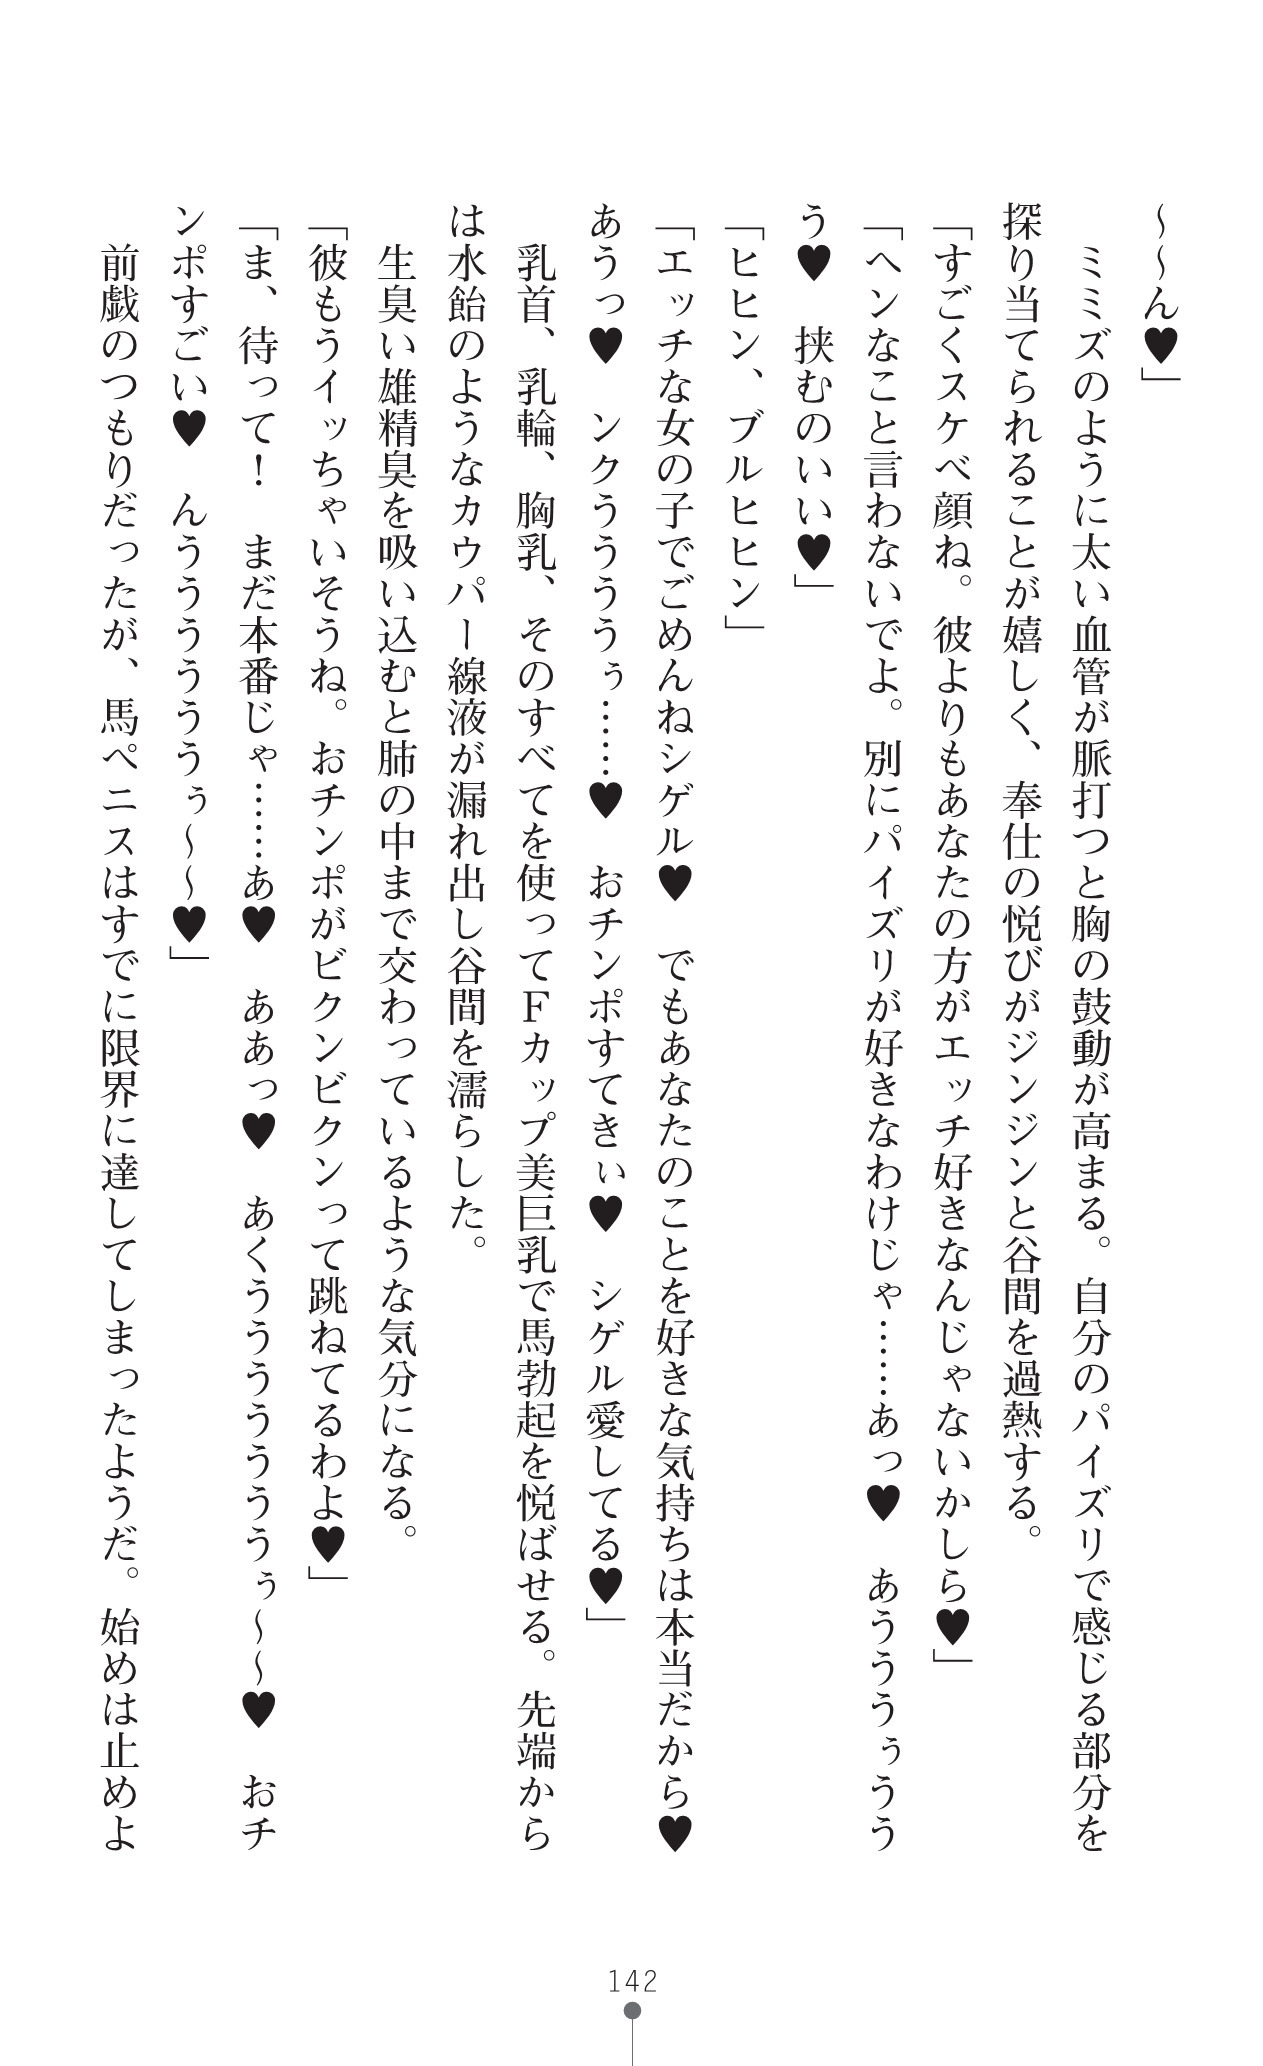 ～～ん♥」
　ミミズのように太い血管が脈打つと胸の鼓動が高まる。自分のパイズリで感じる部分を
探り当てられることが嬉しく、奉仕の悦びがジンジンと谷間を過熱する。
「すごくスケベ顔ね。彼よりもあなたの方がエッチ好きなんじゃないかしら♥」
「ヘンなこと言わないでよ。別にパイズリが好きなわけじゃ……あっ♥　あうううぅうう
う♥　挟むのいい♥」
「ヒヒン、ブルヒヒン」
「エッチな女の子でごめんねシゲル♥　でもあなたのことを好きな気持ちは本当だから♥
あうっ♥　ンクうううぅ……♥　おチンポすてきぃ♥　シゲル愛してる♥」
　乳首、乳輪、胸乳、そのすべてを使ってＦカップ美巨乳で馬勃起を悦ばせる。先端から
は水飴のようなカウパー線液が漏れ出し谷間を濡らした。
　生臭い雄精臭を吸い込むと肺の中まで交わっているような気分になる。
「彼もうイッちゃいそうね。おチンポがビクンビクンって跳ねてるわよ♥」
「ま、待って！　まだ本番じゃ……あ♥　ああっ♥　あくうううううううぅ～～♥　おチ
ンポすごい♥　んううううううぅ～～♥」
　前戯のつもりだったが、馬ペニスはすでに限界に達してしまったようだ。始めは止めよ
142